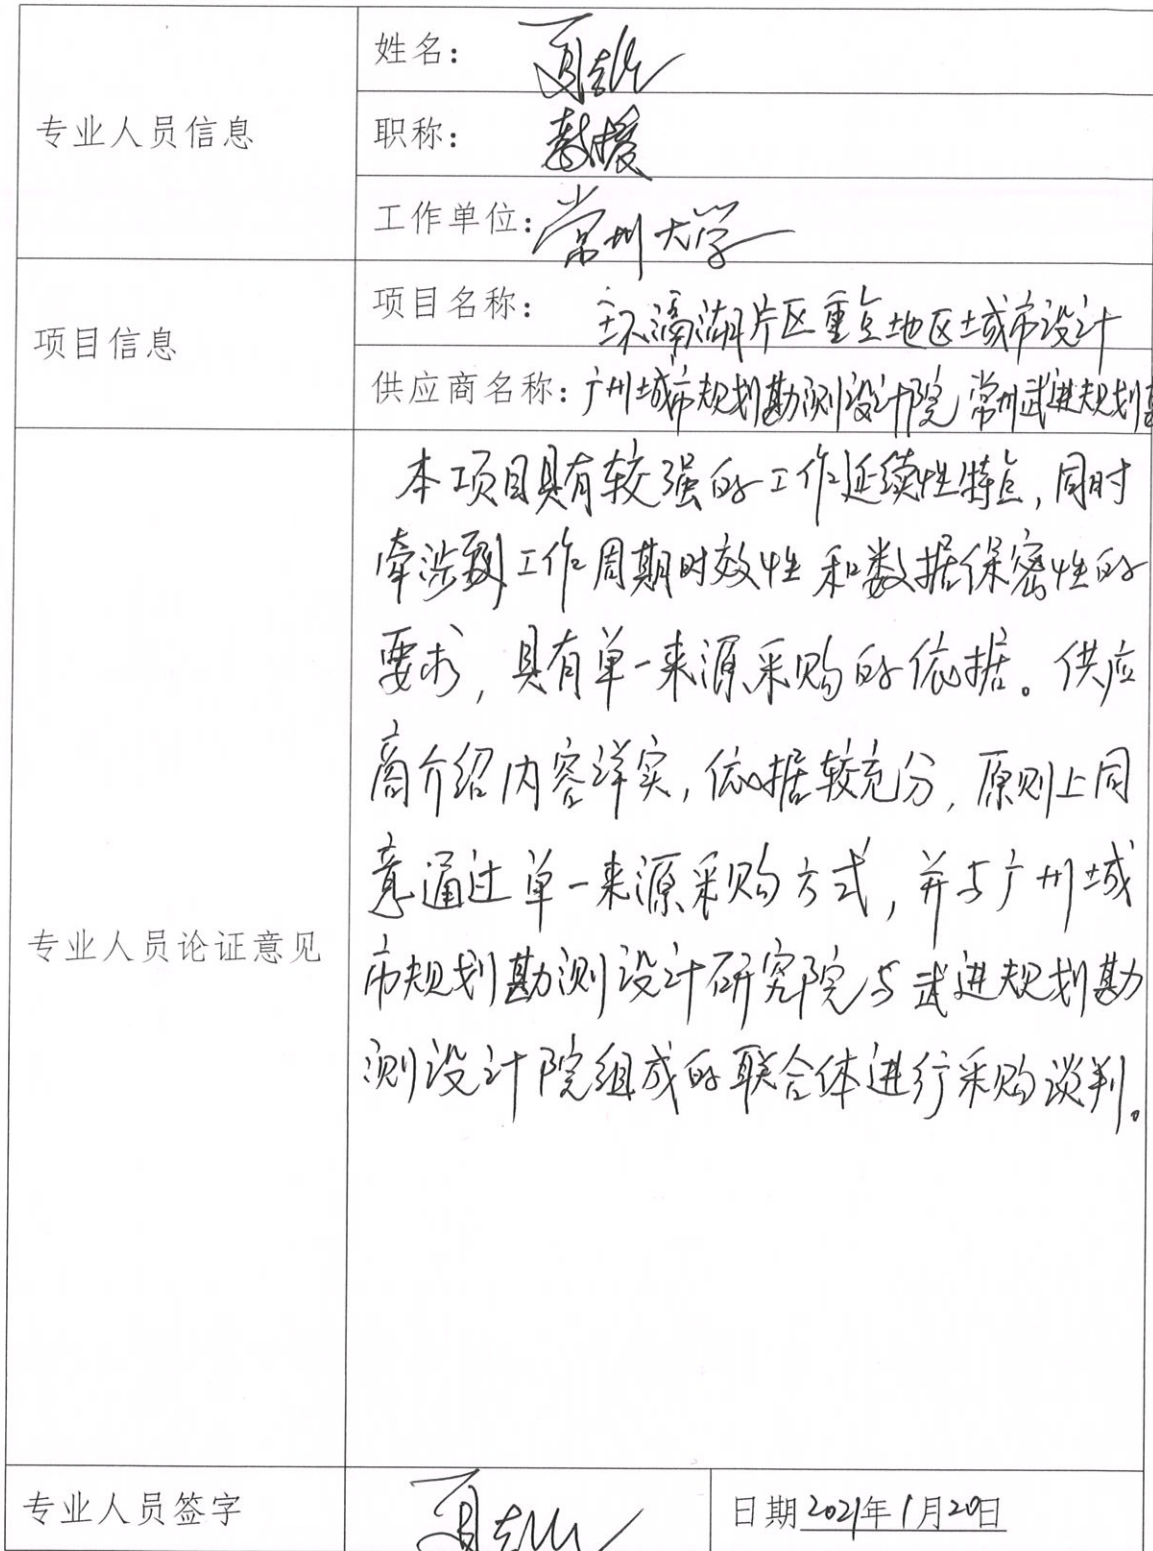 专业人员信息
姓名：
职称：教授
工作单位：常州大学
项目信息
项目名称：环滆湖片区重点地区城市设计
供应商名称：广州城市规划勘测设计院 常州武进规划勘
专业人员论证意见
本项目具有较强的工作延续性特点，同时
牵涉到工作周期时效性和数据保密性的
要求，具有单一来源采购的依据。供应
商介绍内容详实，依据较充分，原则上同
意通过单一来源采购方式，并与广州城
市规划勘测设计研究院与武进规划勘
测设计院组成的联合体进行采购谈判。
专业人员签字
日期2021年1月20日